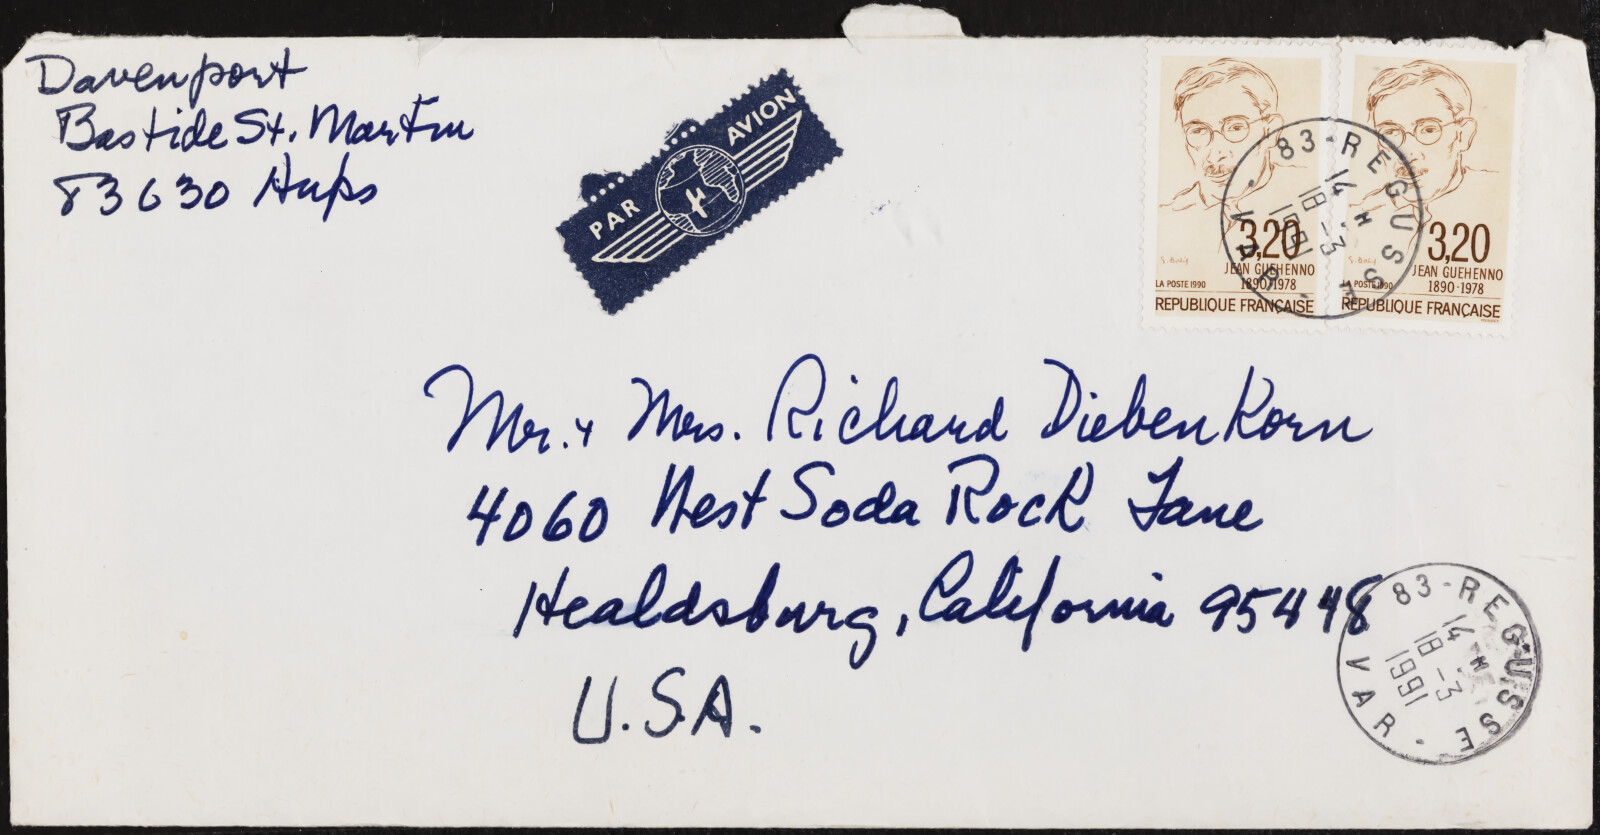 Davenport
Bastide St. Martin
83630 Aups
PAR AVION
3,20
JEAN GUEHENNO
1890-1978
LA POSTE 1990
REPUBLIQUE FRANÇAISE
3,20
JEAN GUEHENNO
1890-1978
LA POSTE 1990
REPUBLIQUE FRANÇAISE
83-REGUSSE
14 H
18-3
1991
VAR
Mr. + Mrs. Richard Diebenkorn
4060 West Soda Rock Lane
Healdsburg, California 95448
U.S.A.
83-REGUSSE
14 H
18-3
1991
VAR